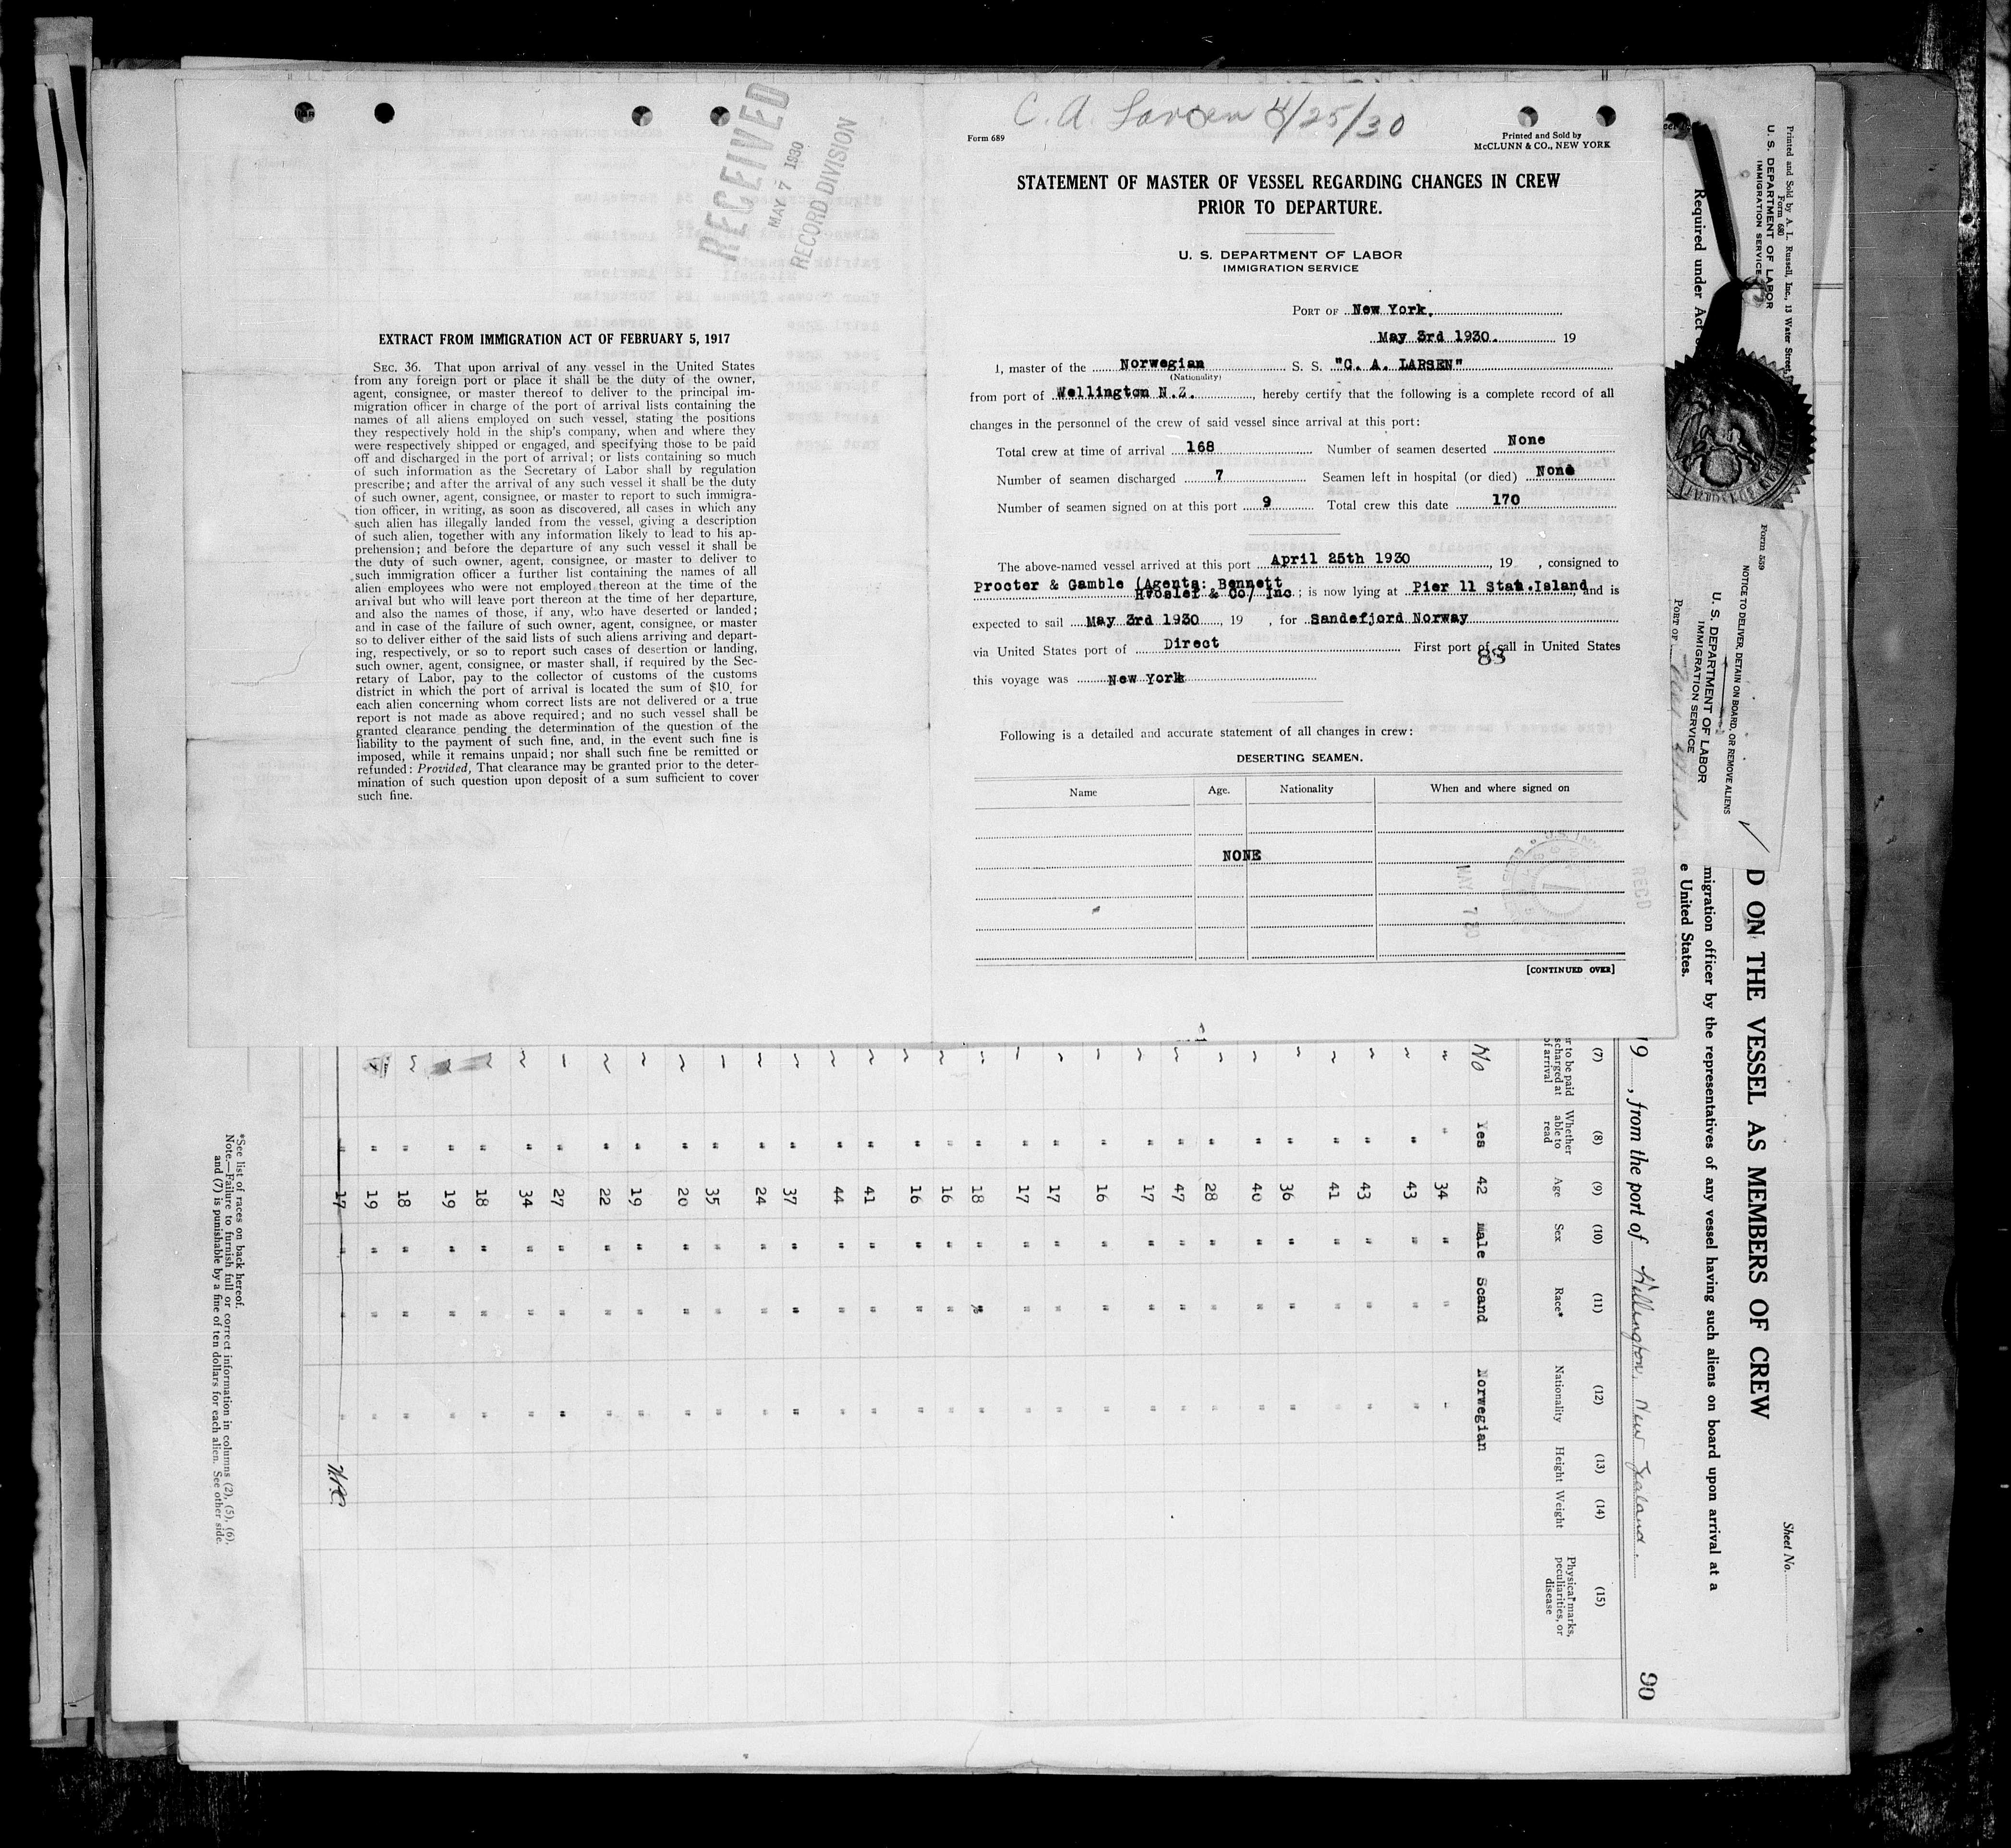 C. A. Larsen 4/25/30
Form 689
Printed and Sold by
McCLUNN & CO., NEW YORK
STATEMENT OF MASTER OF VESSEL REGARDING CHANGES IN CREW
PRIOR TO DEPARTURE.
U. S. DEPARTMENT OF LABOR
IMMIGRATION SERVICE
PORT OF New York.
May 3rd 1930. 19
I, master of the Norwegian S. S. "C. A. LARSEN"
(Nationality)
from port of Wellington N.Z., hereby certify that the following is a complete record of all
changes in the personnel of the crew of said vessel since arrival at this port:
Total crew at time of arrival 168 Number of seamen deserted None
Number of seamen discharged 7 Seamen left in hospital (or died) None
Number of seamen signed on at this port 9 Total crew this date 170
The above-named vessel arrived at this port April 25th 1930, 19 , consigned to
Procter & Gamble (Agents: Bennett
Hvoslef & Co/ Inc; is now lying at Pier 11 Stat.Island and is
expected to sail May 3rd 1930, 19 , for Sandefjord Norway
via United States port of Direct First port of call in United States
83
this voyage was New York
Following is a detailed and accurate statement of all changes in crew:
DESERTING SEAMEN.
Name Age. Nationality When and where signed on
NONE
MAY 7 30
REC'D
[CONTINUED OVER]
RECEIVED
MAY 7 1930
RECORD DIVISION
EXTRACT FROM IMMIGRATION ACT OF FEBRUARY 5, 1917
SEC. 36. That upon arrival of any vessel in the United States
from any foreign port or place it shall be the duty of the owner,
agent, consignee, or master thereof to deliver to the principal im-
migration officer in charge of the port of arrival lists containing the
names of all aliens employed on such vessel, stating the positions
they respectively hold in the ship's company, when and where they
were respectively shipped or engaged, and specifying those to be paid
off and discharged in the port of arrival; or lists containing so much
of such information as the Secretary of Labor shall by regulation
prescribe; and after the arrival of any such vessel it shall be the duty
of such owner, agent, consignee, or master to report to such immigra-
tion officer, in writing, as soon as discovered, all cases in which any
such alien has illegally landed from the vessel, giving a description
of such alien, together with any information likely to lead to his ap-
prehension; and before the departure of any such vessel it shall be
the duty of such owner, agent, consignee, or master to deliver to
such immigration officer a further list containing the names of all
alien employees who were not employed thereon at the time of the
arrival but who will leave port thereon at the time of her departure,
and also the names of those, if any, who have deserted or landed;
and in case of the failure of such owner, agent, consignee, or master
so to deliver either of the said lists of such aliens arriving and depart-
ing, respectively, or so to report such cases of desertion or landing,
such owner, agent, consignee, or master shall, if required by the Sec-
retary of Labor, pay to the collector of customs of the customs
district in which the port of arrival is located the sum of $10 for
each alien concerning whom correct lists are not delivered or a true
report is not made as above required; and no such vessel shall be
granted clearance pending the determination of the question of the
liability to the payment of such fine, and, in the event such fine is
imposed, while it remains unpaid; nor shall such fine be remitted or
refunded: Provided, That clearance may be granted prior to the deter-
mination of such question upon deposit of a sum sufficient to cover
such fine.
Printed and Sold by A. L. Russell, Inc., 13 Water Street,
Form 680
U. S. DEPARTMENT OF LABOR
IMMIGRATION SERVICE
Required under Act
Form 539
NOTICE TO DELIVER, DETAIN ON BOARD, OR REMOVE ALIENS
U. S. DEPARTMENT OF LABOR
IMMIGRATION SERVICE
PORT OF
Sheet No.
D ON THE VESSEL AS MEMBERS OF CREW
migration officer by the representatives of any vessel having such aliens on board upon arrival at a
e United States.
19 , from the port of Wellington, New Zealand.
90
(7) (8) (9) (10) (11) (12) (13) (14) (15)
r to be paid
scharged at
of arrival
Whether
able to
read
Age Sex Race* Nationality Height Weight
Physical marks,
peculiarities, or
disease
No Yes 42 male Scand Norwegian
" " 34 " " "
" " 43 " " "
" " 43 " " "
" " 41 " " "
" " 36 " " "
" " 40 " " "
" " 28 " " "
" " 47 " " "
" " 17 " " "
" " 16 " " "
" " 17 " " "
" " 17 " " "
" " 18 " " "
" " 16 " " "
" " 16 " " "
" " 41 " " "
" " 44 " " "
" " 37 " " "
" " 24 " " "
" " 35 " " "
" " 20 " " "
" " 19 " " "
" " 22 " " "
" " 27 " " "
" " 34 " " "
" " 18 " " "
" " 19 " " "
" " 18 " " "
" " 19 " " "
" 17 " " "
*See list of races on back hereof.
Note.—Failure to furnish full or correct information in columns (2), (5), (6),
and (7) is punishable by a fine of ten dollars for each alien. See other side.